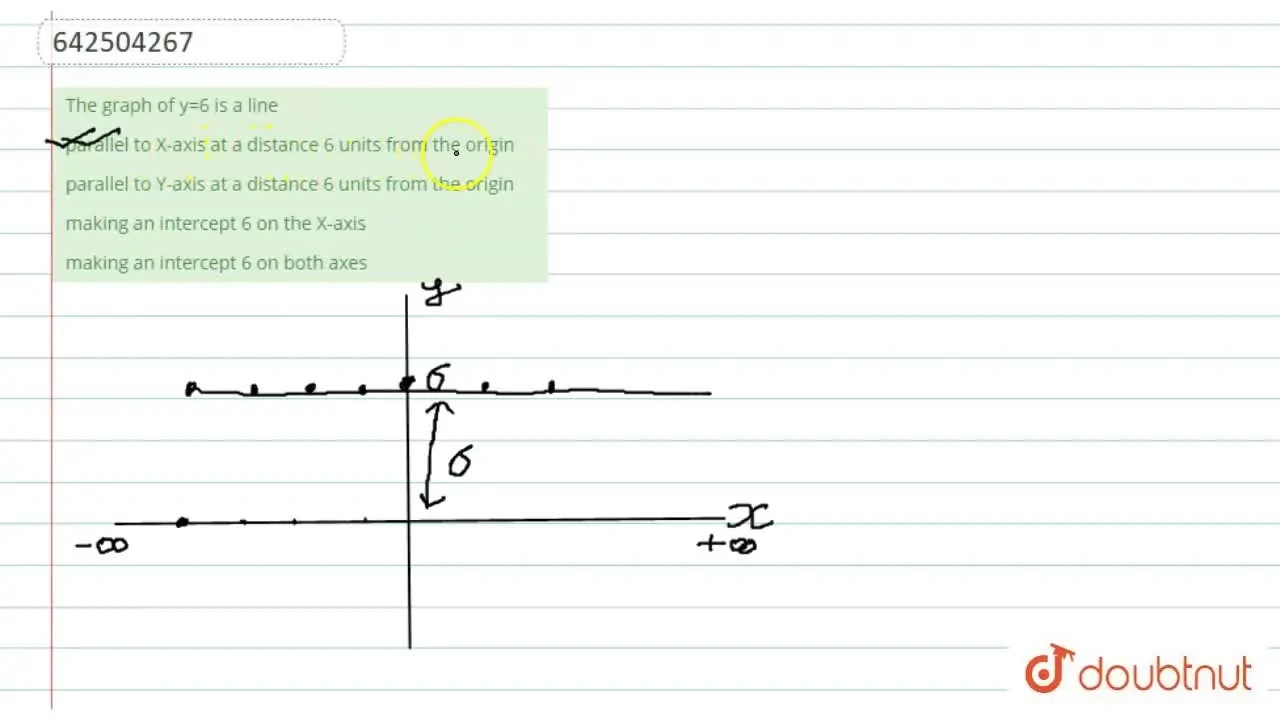 642504267
The graph of y=6 is a line
parallel to X-axis at a distance 6 units from the origin
parallel to Y-axis at a distance 6 units from the origin
making an intercept 6 on the X-axis
making an intercept 6 on both axes
y
6
6
x
-∞
+∞
doubtnut